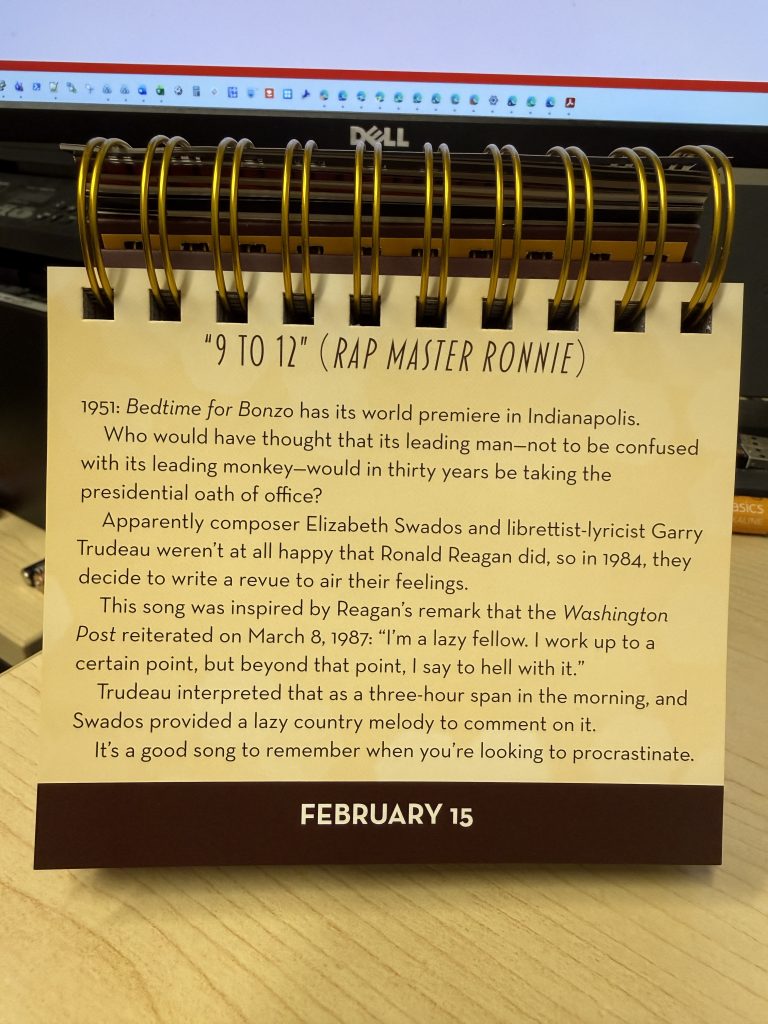 DELL
"9 TO 12" (RAP MASTER RONNIE)
1951: Bedtime for Bonzo has its world premiere in Indianapolis.
Who would have thought that its leading man—not to be confused
with its leading monkey—would in thirty years be taking the
presidential oath of office?
Apparently composer Elizabeth Swados and librettist-lyricist Garry
Trudeau weren't at all happy that Ronald Reagan did, so in 1984, they
decide to write a revue to air their feelings.
This song was inspired by Reagan's remark that the Washington
Post reiterated on March 8, 1987: "I'm a lazy fellow. I work up to a
certain point, but beyond that point, I say to hell with it."
Trudeau interpreted that as a three-hour span in the morning, and
Swados provided a lazy country melody to comment on it.
It's a good song to remember when you're looking to procrastinate.
FEBRUARY 15